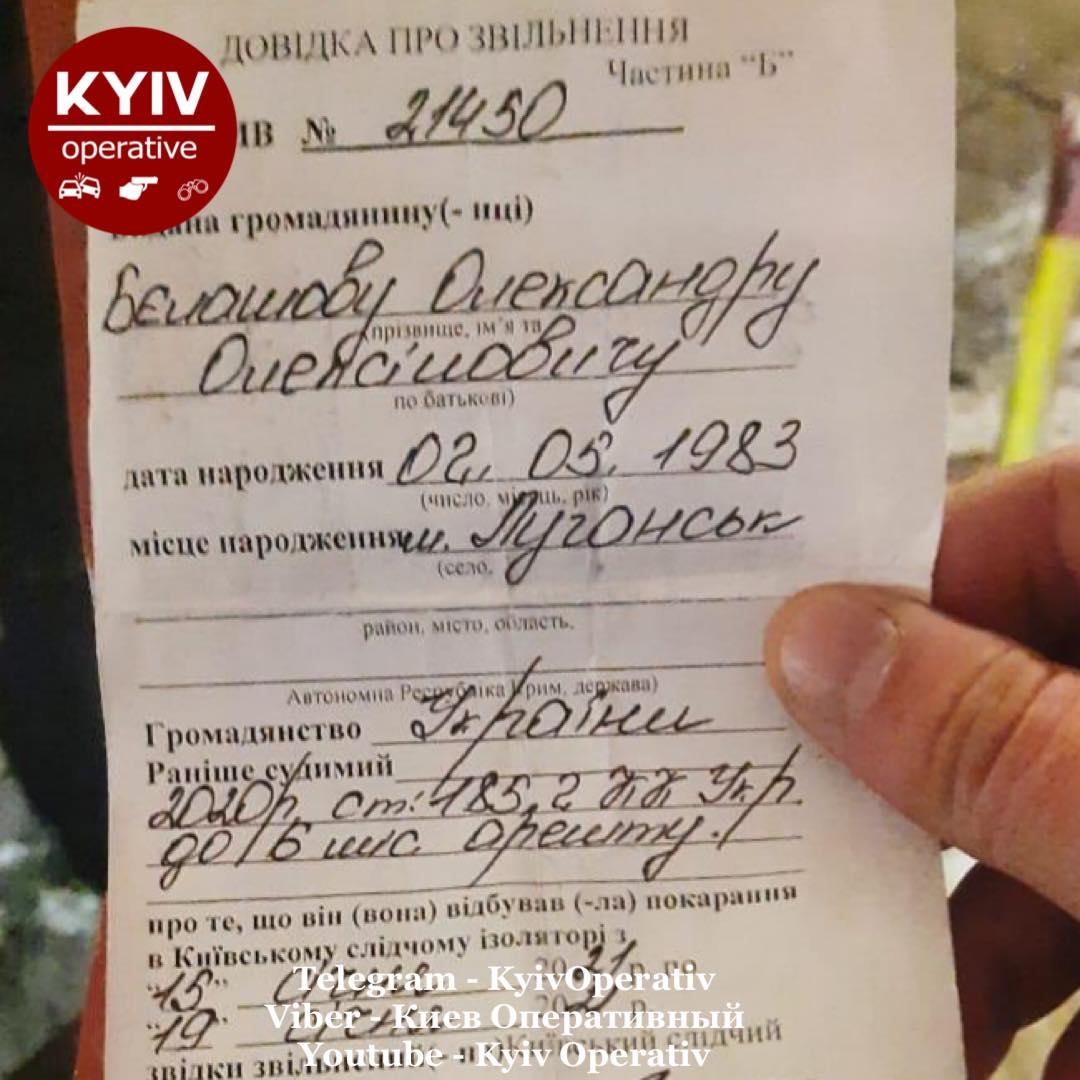 ДОВІДКА ПРО ЗВІЛЬНЕННЯ
Частина "Б"
KYIV
operative
ІВ № 21450
Видана громадянину(- иці)
Бєлашову Олександру
(прізвище, ім'я та
Олексійовичу
по батькові)
дата народження 02. 05. 1983
(число, місяць, рік)
місце народження м. Луганськ
(село,
район, місто, область,
Автономна Республіка Крим, держава)
Громадянство України
Раніше судимий
2020р. ст: 185, 2 КК Укр.
до 6 міс. арешту.
про те, що він (вона) відбував (-ла) покарання
в Київському слідчому ізоляторі з
"15" 2021 р. по
"19" р.
звідки звільнений слідчий
Telegram - KyivOperativ
Viber - Киев Оперативный
Youtube - Kyiv Operativ